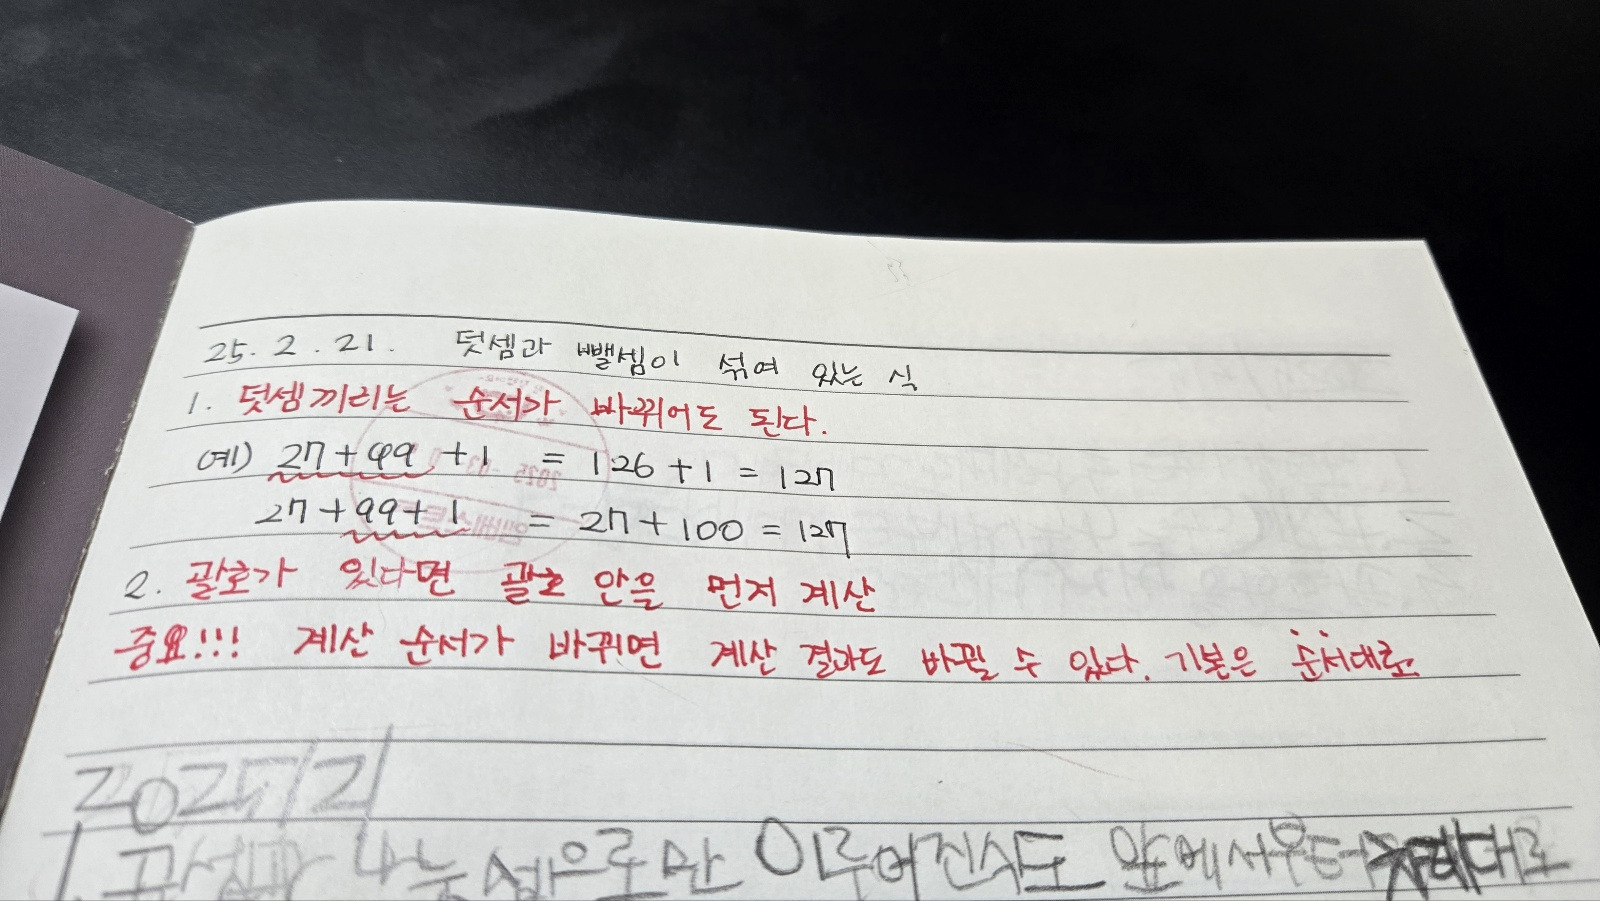 25. 2. 21. 덧셈과 뺄셈이 섞여 있는 식
1. 덧셈끼리는 순서가 바뀌어도 된다.
예) 27+99+1 = 126+1 = 127
27+99+1 = 27+100 = 127
2. 괄호가 있다면 괄호 안을 먼저 계산
중요!!! 계산 순서가 바뀌면 계산 결과도 바뀔 수 있다. 기본은 순서대로
2025/2/
1. 곱셈과 나눗셈으로만 이루어진식도 앞에서부터 차례대로